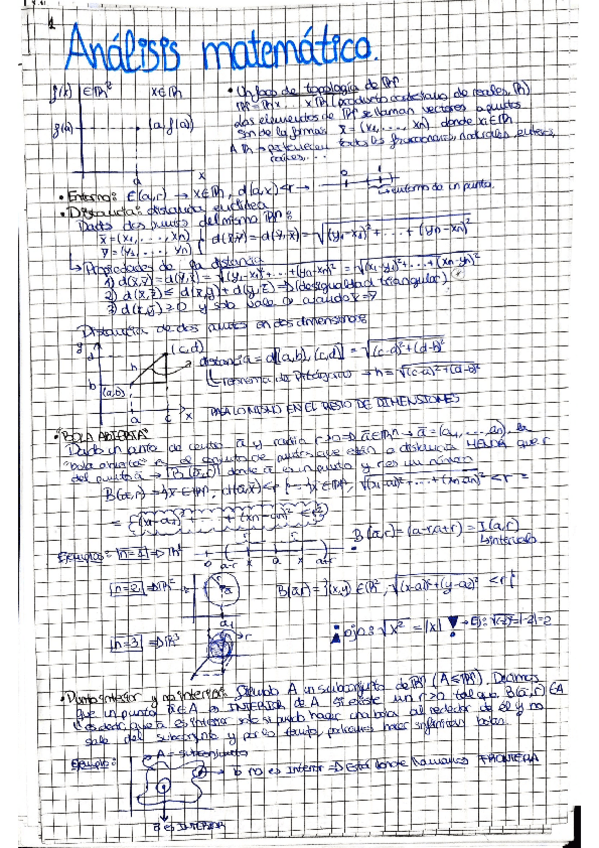 1
Análisis matemático.
f(x) ∈ℝ² x∈ℝ
f(a) (a, f(a))
a x
• Un poco de topología de ℝⁿ
ℝⁿ = ℝx... xℝ (producto cartesiano de reales, ℝ)
Los elementos de ℝⁿ se llaman vectores o puntos
son de la forma x̄ = (x₁, ..., xₙ) donde xᵢ∈ℝ
A ℝ → pertenecen todos los fraccionarios, naturales, enteros,
raíces, ...
• Entorno: E(a,r) → x∈ℝ, d(a,x)<r → entorno de un punto.
• Distancia: distancia euclídea
Dados dos puntos del mismo ℝⁿ:
x̄ = (x₁, ..., xₙ)
ȳ = (y₁, ..., yₙ) d(x̄,ȳ) = d(ȳ,x̄) = √(y₁-x₁)² + ... + (yₙ-xₙ)²
↳ Propiedades de la distancia
1) d(x̄,ȳ) = d(ȳ,x̄) = √(y₁-x₁)² + ... + (yₙ-xₙ)² = √(x₁-y₁)² + ... + (xₙ-yₙ)²
2) d(x̄,z̄) ≤ d(x̄,ȳ) + d(ȳ,z̄) ⇒ (desigualdad triangular)
3) d(x̄,ȳ) ≥ 0 y solo vale 0 cuando x̄=ȳ
Distancia de dos puntos en dos dimensiones
y
d (c,d)
h
b (a,b)
a c x
distancia = d[(a,b), (c,d)] = √(c-a)²+(d-b)²
↳ Teorema de Pitágoras ⇒ h = √(c-a)²+(d-b)²
PASA LO MISMO EN EL RESTO DE DIMENSIONES
• "BOLA ABIERTA"
Dado un punto de centro ā y radio r>0 ⇒ ā∈ℝⁿ → ā = (a₁, ..., aₙ), la
"bola abierta" es el conjunto de puntos que están a distancia MENOR que r
del punto ā → B(ā,r) donde ā es un punto y r es un número
B(ā,r) = {x̄∈ℝⁿ, d(ā,x̄)<r} = {x̄∈ℝⁿ, √(x₁-a₁)² + ... + (xₙ-aₙ)² < r =
= {(x₁-a₁)² + ... + (xₙ-aₙ)² < r²}
B(a,r) = (a-r, a+r) = I(a,r)
↳ intervalo
Ejemplos: n=1 ⇒ ℝ¹
0 a-r x a x a+r
n=2 ⇒ ℝ²
B(ā,r) = {(x,y)∈ℝ², √(x-a₁)²+(y-a₂)² < r}
n=3 ⇒ ℝ³
¡ojo: √x² = |x|! → Ej: √(-2)² = |-2| = 2
• Punto interior y no interior: Siendo A un subconjunto de ℝⁿ (A⊆ℝⁿ). Decimos
que un punto ā∈A es INTERIOR de A si existe un r>0 tal que B(ā,r)⊂A
es decir, que ā es interior solo si puedo hacer una bola alrededor de él y no
sale del subconjunto y por lo tanto, podríamos hacer infinitas bolas.
Ejemplo: A = subconjunto
b no es interior ⇒ Está donde llamamos FRONTERA
ā es INTERIOR